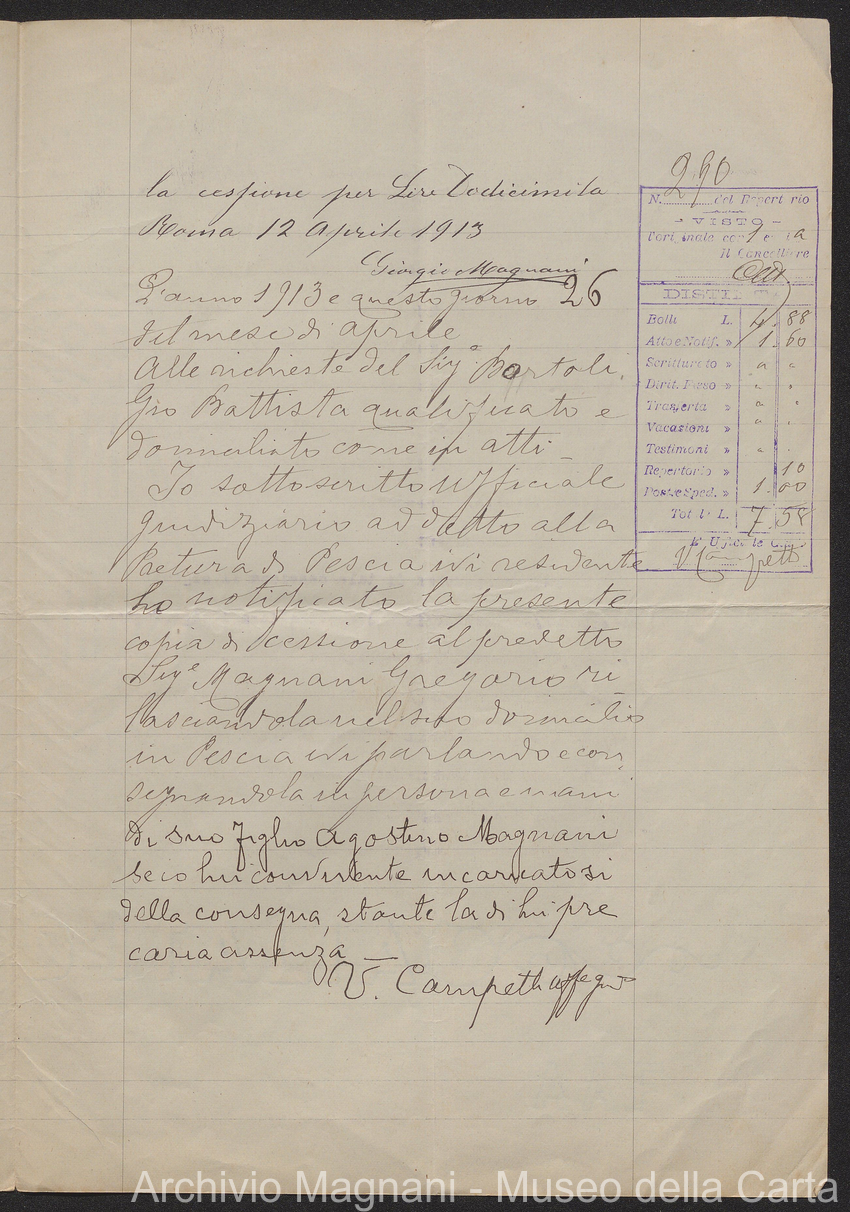 la cessione per Lire Dodicimila
Roma 12 Aprile 1913
Giorgio Magnani
L'anno 1913 e questo giorno 26
del mese di Aprile
Alle richieste del Sigr. Bartoli
Gio Battista qualificato e
domiciliato come in atti _
Io sottoscritto Ufficiale
Giudiziario addetto alla
Pretura di Pescia ivi residente
ho notificato la presente
copia di cessione al predetto
Sige Magnani Gregorio ri_
lasciandola nel suo domicilio
in Pescia ivi parlando e con
segnandola in persona e mani
di suo figlio Agostino Magnani
seco lui convivente incaricatosi
della consegna, stante la di lui pre
caria assenza _
V. Campetti
290
N. del Repertorio
- VISTO -
l'originale con
il Cancelliere
DISTINTA
Bolli L. 4. 88
Atto e Notif. » 1. 60
Scritturato » " "
Dirit. Fisso » " "
Trasferta » " "
Vacazioni » " "
Testimoni » " "
Repertorio » 10
Post. e Sped. » 1. 00
Totale L. 7. 58
L'Ufficiale Giud.
V Campetti
Archivio Magnani - Museo della Carta